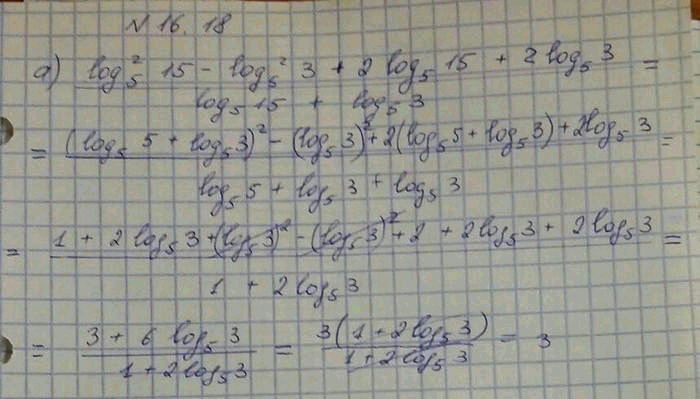 N 16. 18
а) log₅² 15 - log₅² 3 + 2 log₅ 15 + 2 log₅ 3 =
log₅ 15 + log₅ 3
= (log₅ 5 + log₅ 3)² - (log₅ 3)² + 2(log₅ 5 + log₅ 3) + 2log₅ 3 =
log₅ 5 + log₅ 3 + log₅ 3
= 1 + 2 log₅ 3 + (log₅ 3)² - (log₅ 3)² + 2 + 2 log₅ 3 + 2 log₅ 3 =
1 + 2 log₅ 3
= 3 + 6 log₅ 3 = 3(1 + 2 log₅ 3) = 3
1 + 2 log₅ 3 1 + 2 log₅ 3